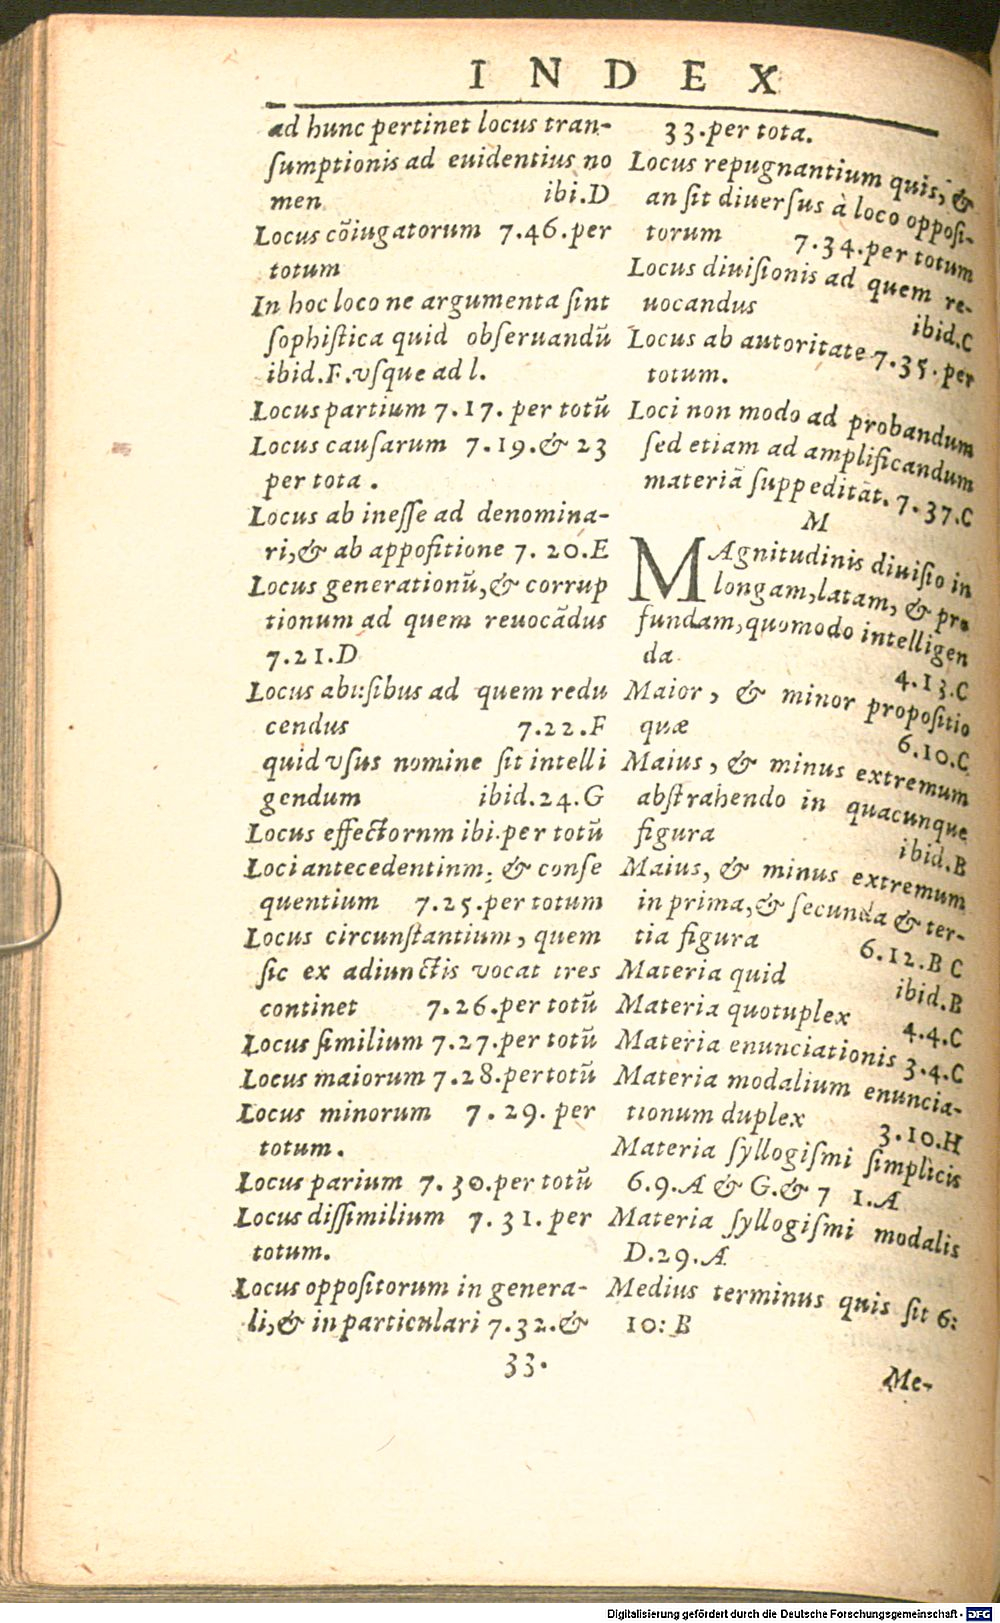 INDEX
ad hunc pertinet locus tran-
sumptionis ad euidentius no
men ibi.D
Locus cōiugatorum 7.46.per
totum
In hoc loco ne argumenta sint
sophistica quid obseruandū
ibid.F.vsque ad l.
Locus partium 7.17. per totū
Locus causarum 7.19.& 23
per tota.
Locus ab inesse ad denomina-
ri,& ab appositione 7. 20.E
Locus generationū,& corrup
tionum ad quem reuocādus
7.21.D
Locus abusibus ad quem redu
cendus 7.22.F
quid vsus nomine sit intelli
gendum ibid.24.G
Locus effectornm ibi.per totū
Loci antecedentinm, & conse
quentium 7.25.per totum
Locus circunstantium, quem
sic ex adiunctis vocat tres
continet 7.26.per totū
Locus similium 7.27.per totū
Locus maiorum 7.28.per totū
Locus minorum 7.29. per
totum.
Locus parium 7.30.per totū
Locus dissimilium 7.31. per
totum.
Locus oppositorum in genera-
li,& in particulari 7.32.&
33.
33.per tota.
Locus repugnantium quis, &
an sit diuersus à loco opposi-
torum 7.34.per totum
Locus diuisionis ad quem re-
uocandus ibid.C
Locus ab autoritate 7.35.per
totum.
Loci non modo ad probandum
sed etiam ad amplificandum
materiā suppeditāt. 7.37.C
M
MAgnitudinis diuisio in
longam,latam, & pro
fundam,quomodo intelligen
da 4.13.C
Maior, & minor propositio
quæ 6.10.C
Maius, & minus extremum
abstrahendo in quacunque
figura ibid.B
Maius, & minus extremum
in prima,& secunda & ter-
tia figura 6.12.B C
Materia quid ibid.B
Materia quotuplex 4.4.C
Materia enunciationis 3.4.C
Materia modalium enuncia-
tionum duplex 3.10.H
Materia syllogismi simplicis
6.9.A & G.& 7 1.A
Materia syllogismi modalis
D.29.A
Medius terminus quis sit 6:
10: B
Me-
Digitalisierung gefördert durch die Deutsche Forschungsgemeinschaft - DFG